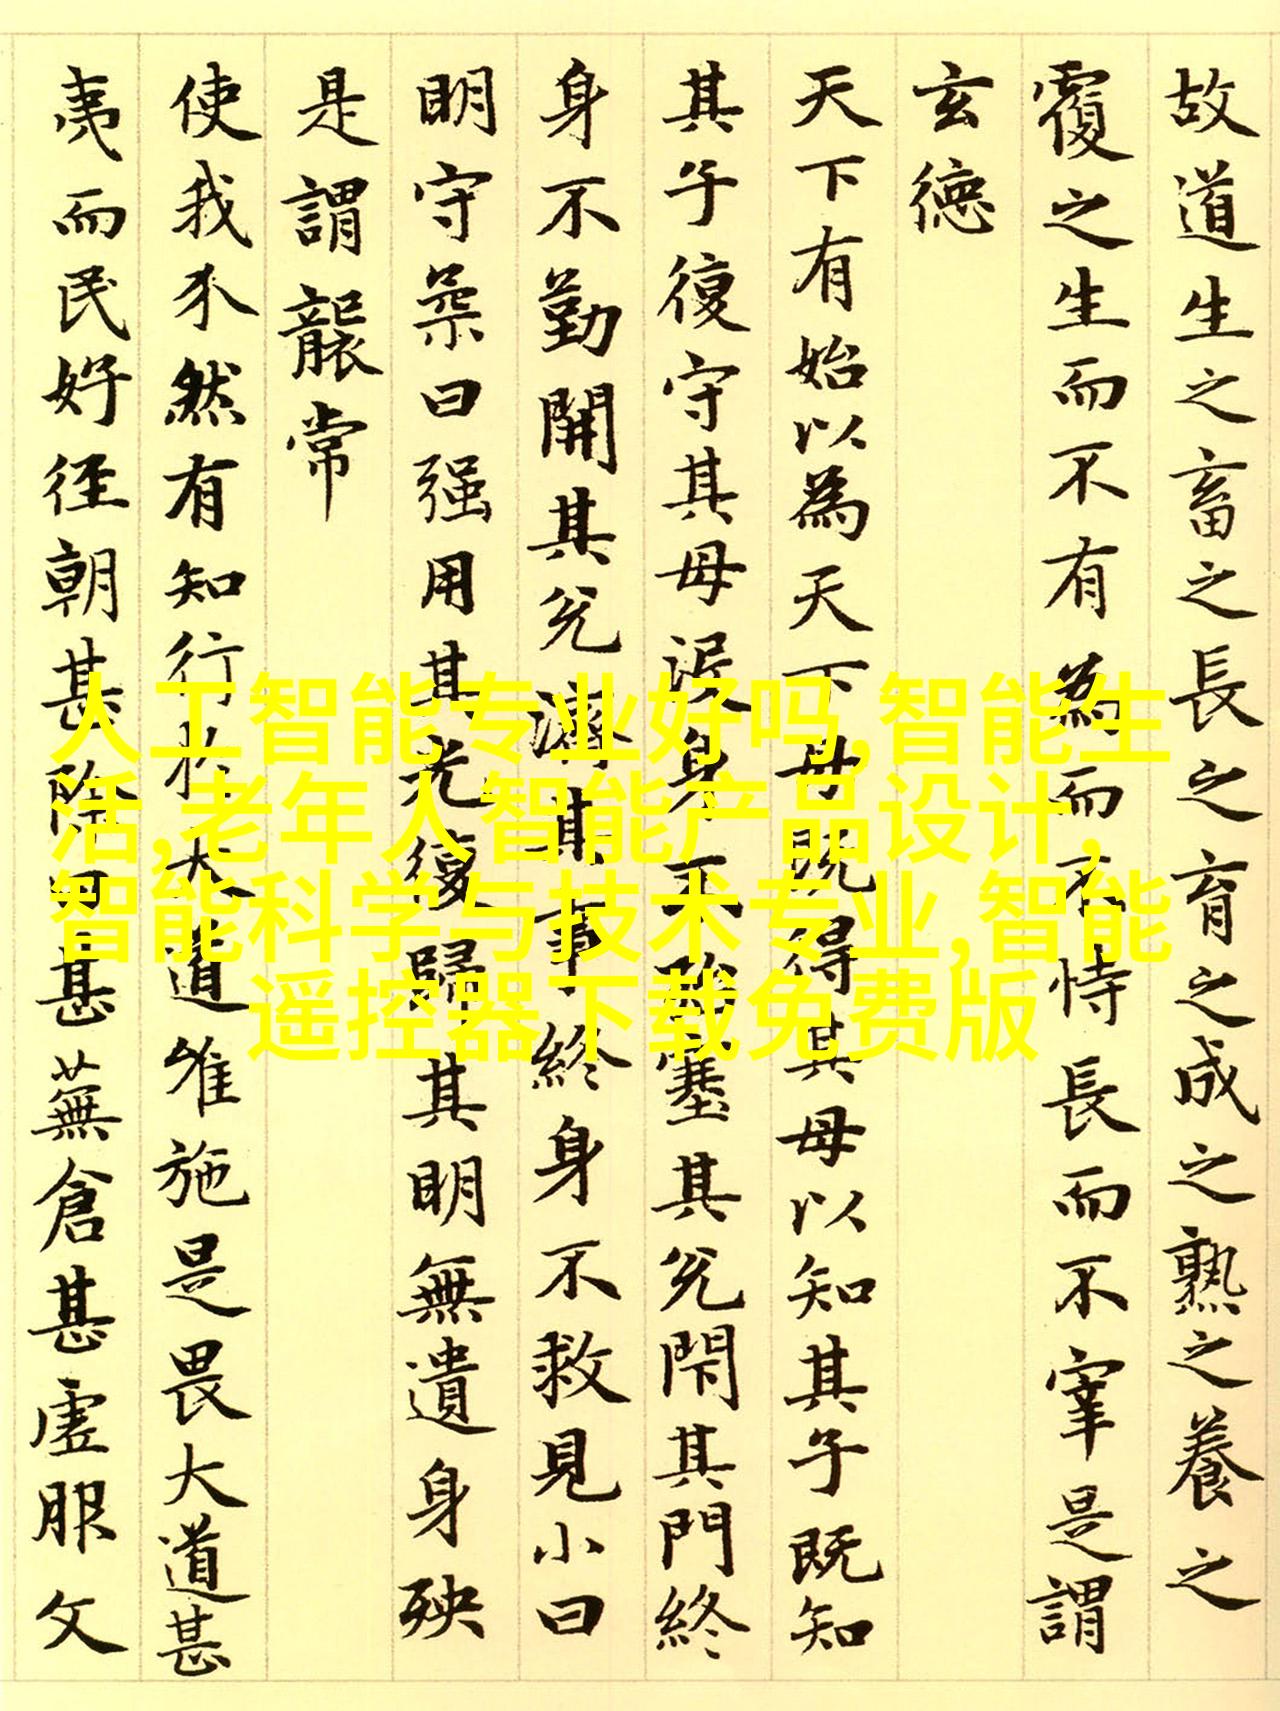 故道生之畜之長之育之成之熟之養之
覆之生而不有為而不恃長而不宰是謂
玄德
天下有始以為天下母既得其母以知其子既知
其子復守其母没身不殆塞其兊閇其門終
身不勤開其兊濟其事終身不救見小曰
明守柔曰强用其光復歸其明無遺身殃
是謂襲常
使我介然有知行於大道唯施是畏大道甚
夷而民好徑朝甚除田甚蕪倉甚虚服文
人工智能专业好吗,智能生
活,老年人智能产品设计,
智能科学与技术专业,智能
遥控器下载免费版